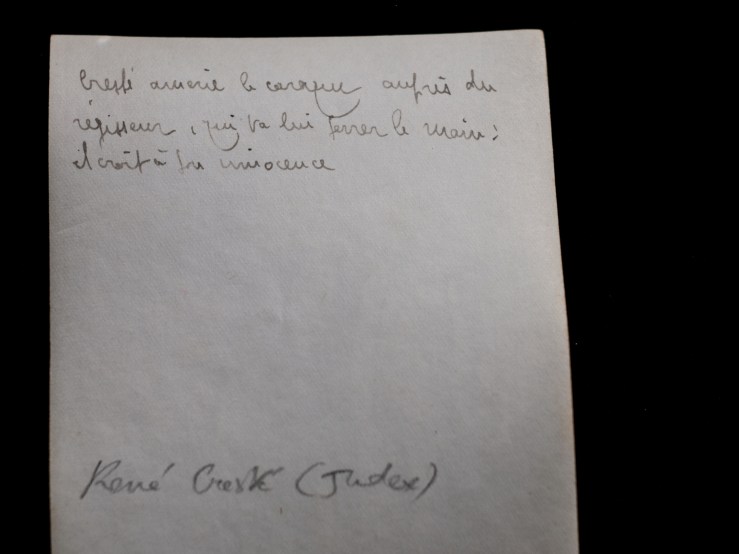 Cresté amène le coupeur auprès du
régisseur, qui va lui serrer la main :
il croit à son innocence
René Cresté (Judex)